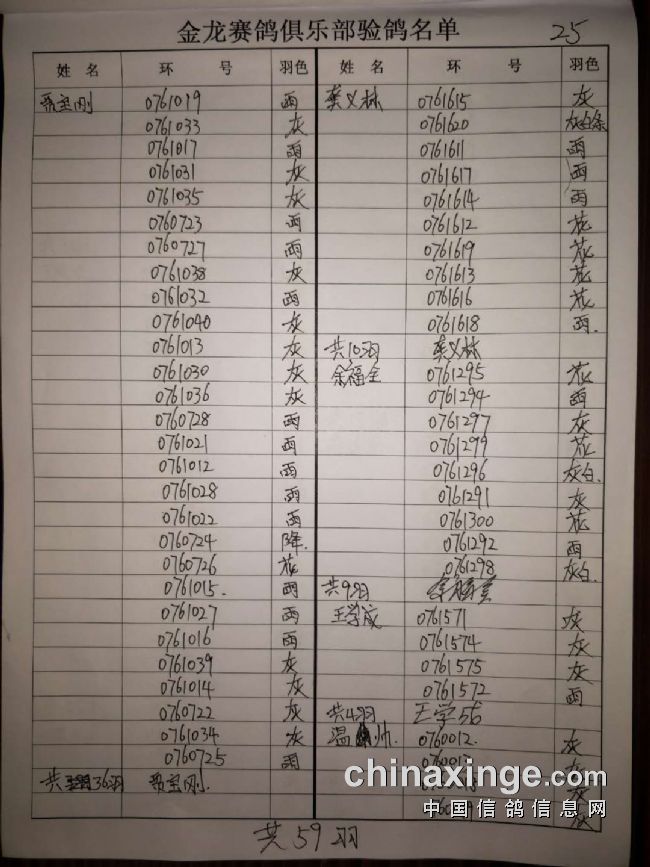 金龙赛鸽俱乐部验鸽名单
25
姓 名 环 号 羽色
宝刚 0761019 雨
0761033 灰
0761017 雨
0761031 灰
0761035 灰
0760723 雨
0760727 雨
0761038 灰
0761032 雨
0761040 灰
0761013 灰
0761030 灰
0761036 灰
0760728 雨
0761021 雨
0761012 雨
0761028 雨
0761022 雨
0760724 降.
0760726 花
0761015. 雨
0761027 雨
0761016 雨
0761039 灰
0761014 灰
0760722 灰
0761034 灰
0760725 雨
共 36羽 宝刚.
姓 名 环 号 羽色
龚义林 0761615 灰
0761620 灰白条
0761611 雨
0761617 雨
0761614 雨
0761612 花
0761619 花
0761613 花
0761616 花
0761618 雨.
共10羽 龚义林
余福全 0761295 花
0761294 雨
0761297 灰
0761299 花
0761296 灰白.
0761291 灰
0761300 花
0761292 雨
0761298 灰白.
共9羽
王学成 0761571 灰
0761574 灰
0761575 灰
0761572 雨
共4羽 王学成
温 州. 0760012. 灰
chinaxinge.com
中国信鸽信息网
共59羽